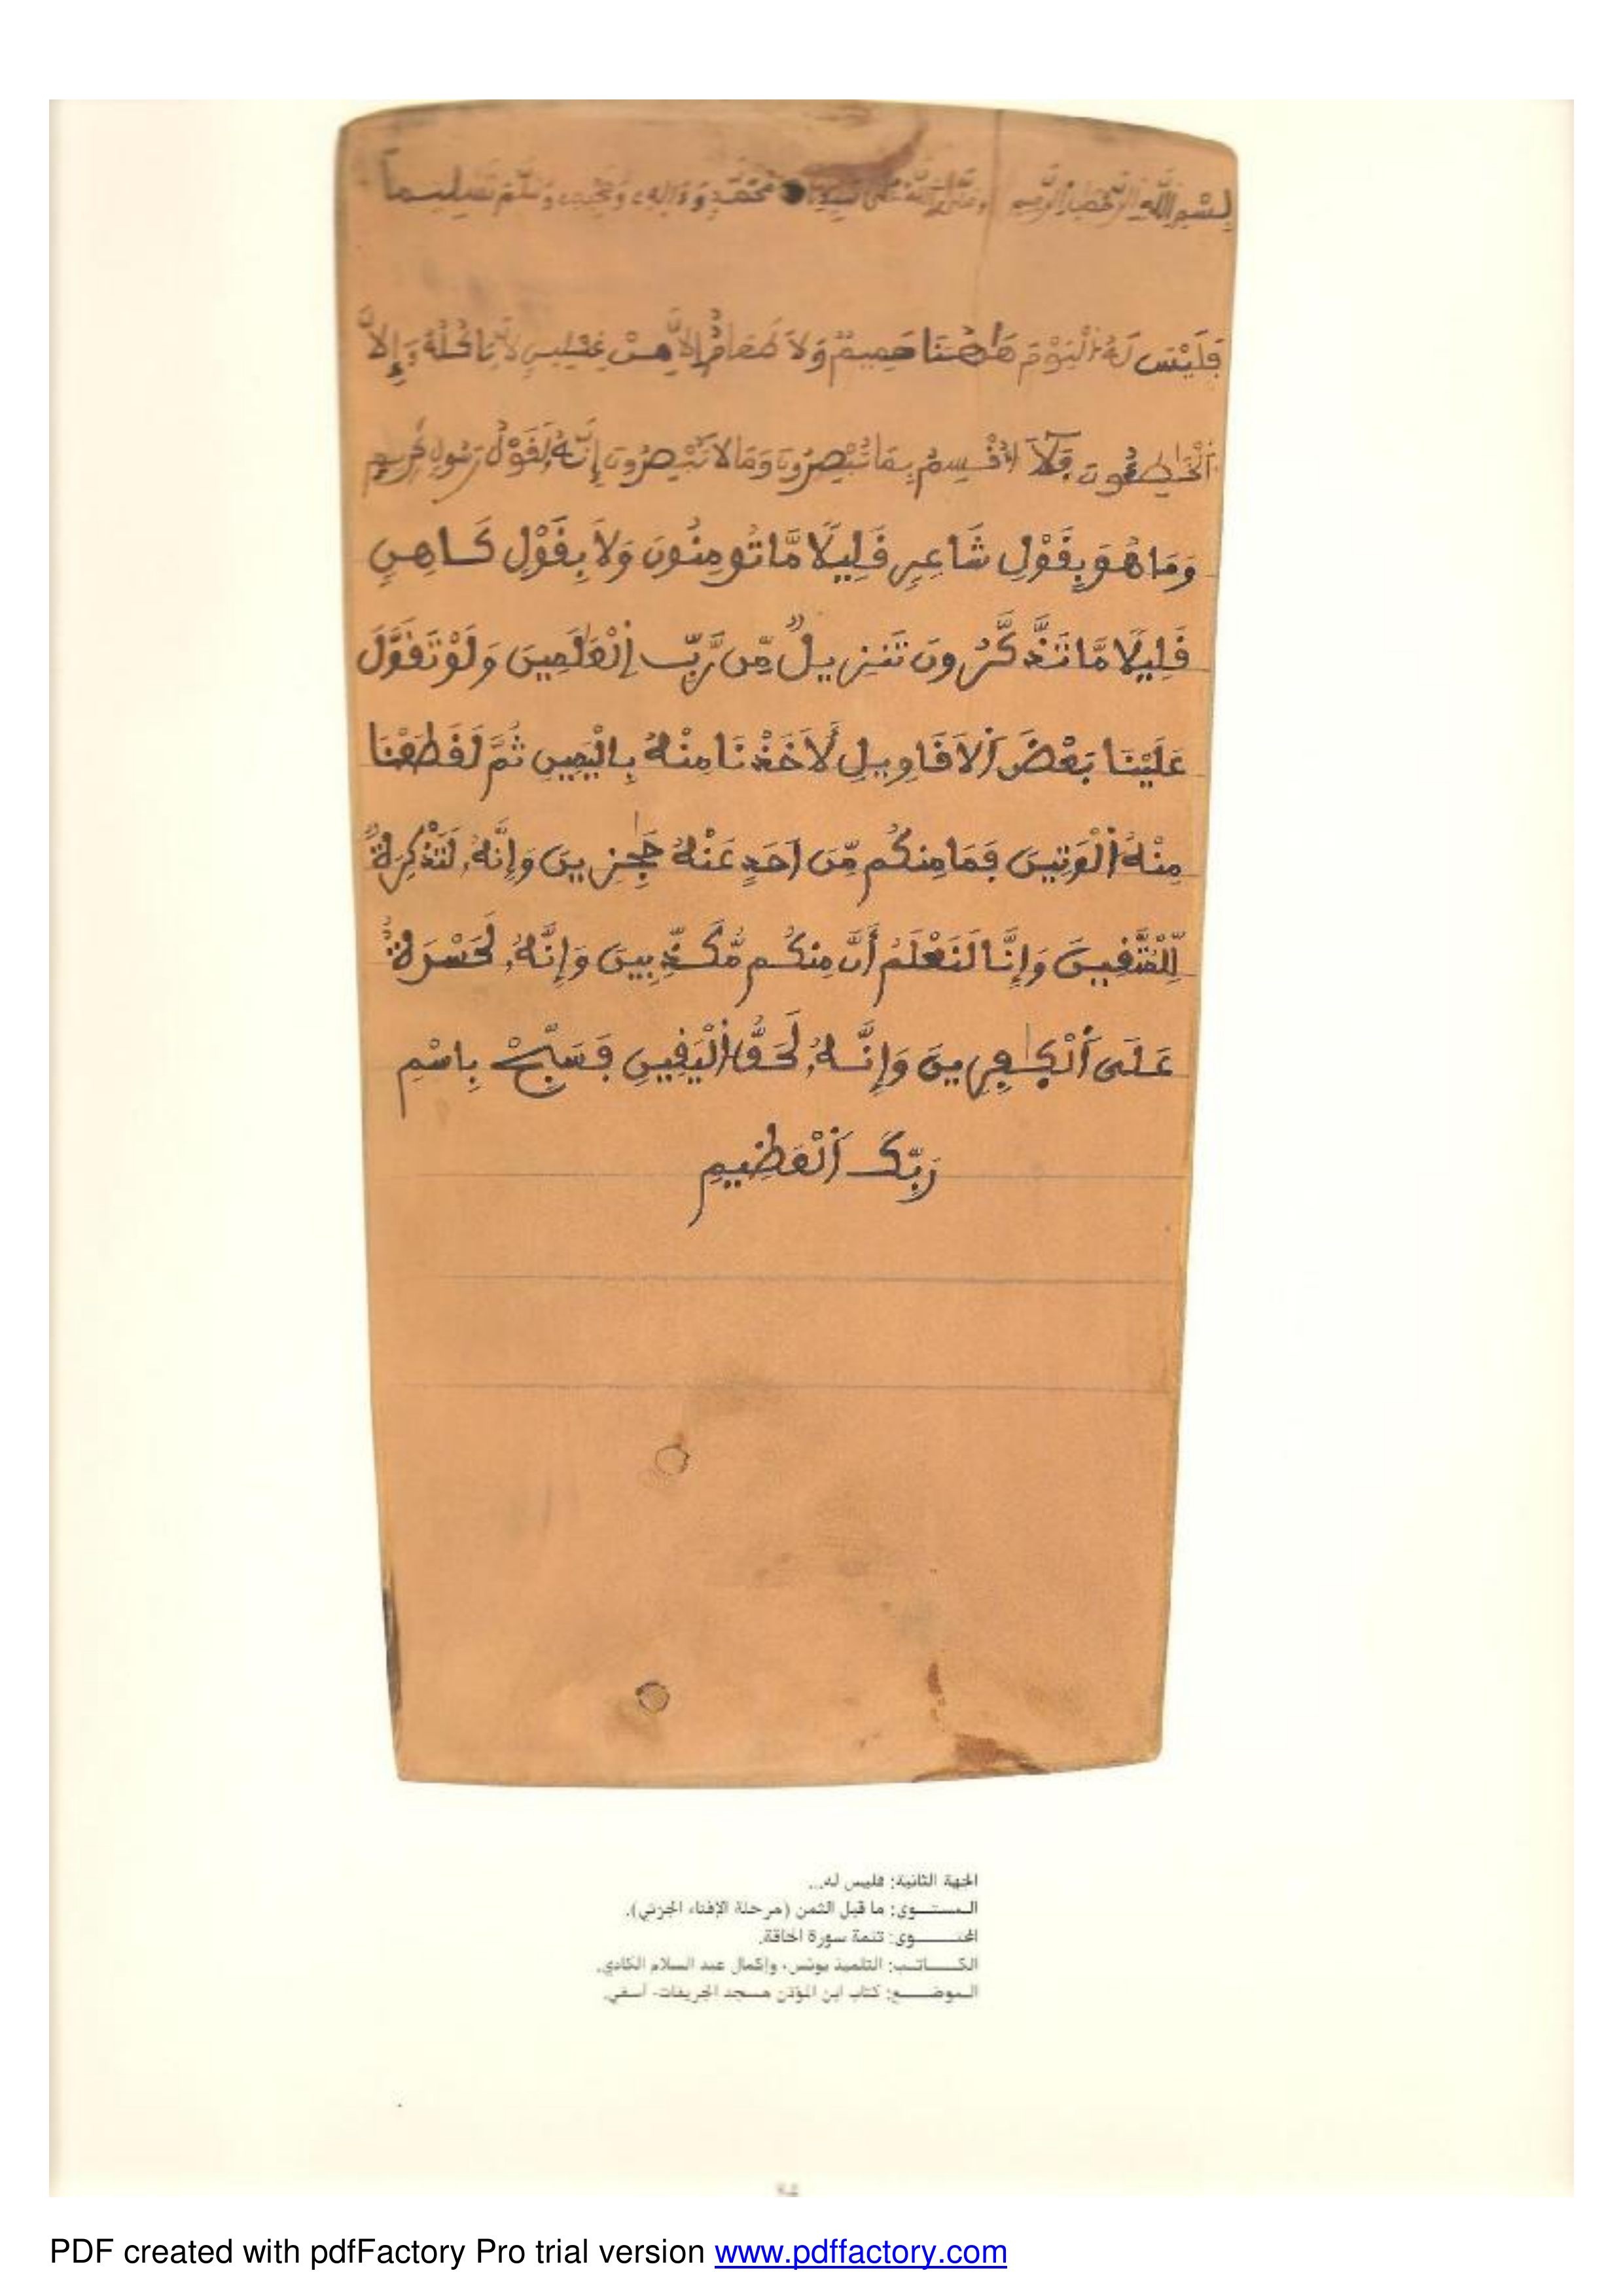 بِسْمِ اللَّهِ الرَّحْمَٰنِ الرَّحِيمِ وَصَلَّى اللَّهُ عَلَى سَيِّدِنَا مُحَمَّدٍ وَءَالِهِ وَصَحْبِهِ وَسَلَّمَ تَسْلِيماً
فَلَيْسَ لَهُ اُ۬لْيَوْمَ هَٰهُنَا حَمِيمٌ وَلَا طَعَامٌ إِلَّا مِنْ غِسْلِينٍ لَّا يَاكُلُهُ إِلَّا
اَ۬لْخَٰطِـُٔونَ فَلَا أُقْسِمُ بِمَا تُبْصِرُونَ وَمَا لَا تُبْصِرُونَ إِنَّهُ لَقَوْلُ رَسُولٍ كَرِيمٍ
وَمَا هُوَ بِقَوْلِ شَاعِرٍ قَلِيلًا مَّا تُومِنُونَ وَلَا بِقَوْلِ كَاهِنٍ
قَلِيلًا مَّا تَذَّكَّرُونَ تَنزِيلٌ مِّن رَّبِّ اِ۬لْعَٰلَمِينَ وَلَوْ تَقَوَّلَ
عَلَيْنَا بَعْضَ اَ۬لَاقَاوِيلِ لَأَخَذْنَا مِنْهُ بِالْيَمِينِ ثُمَّ لَقَطَعْنَا
مِنْهُ اُ۬لْوَتِينَ فَمَا مِنكُم مِّنَ اَحَدٍ عَنْهُ حَٰجِزِينَ وَإِنَّهُۥ لَتَذْكِرَةٌ
لِّلْمُتَّقِينَ وَإِنَّا لَنَعْلَمُ أَنَّ مِنكُم مُّكَذِّبِينَ وَإِنَّهُۥ لَحَسْرَةٌ
عَلَى اَ۬لْكَٰفِرِينَ وَإِنَّهُۥ لَحَقُّ اُ۬لْيَقِينِ فَسَبِّحْ بِاسْمِ
رَبِّكَ اَ۬لْعَظِيمِ
الجهة الثانية: فليس له...
المستـــوى: ما قبل الثمن (مرحلة الإفتاء الجزئي).
المحتــــوى: تتمة سورة الحاقة.
الكـــاتـب: التلميذ يونس، وإكمال عبد السلام الكادي.
الموضــــع: كتاب ابن المؤذن مسجد الجريفات- أسفي.
PDF created with pdfFactory Pro trial version www.pdffactory.com